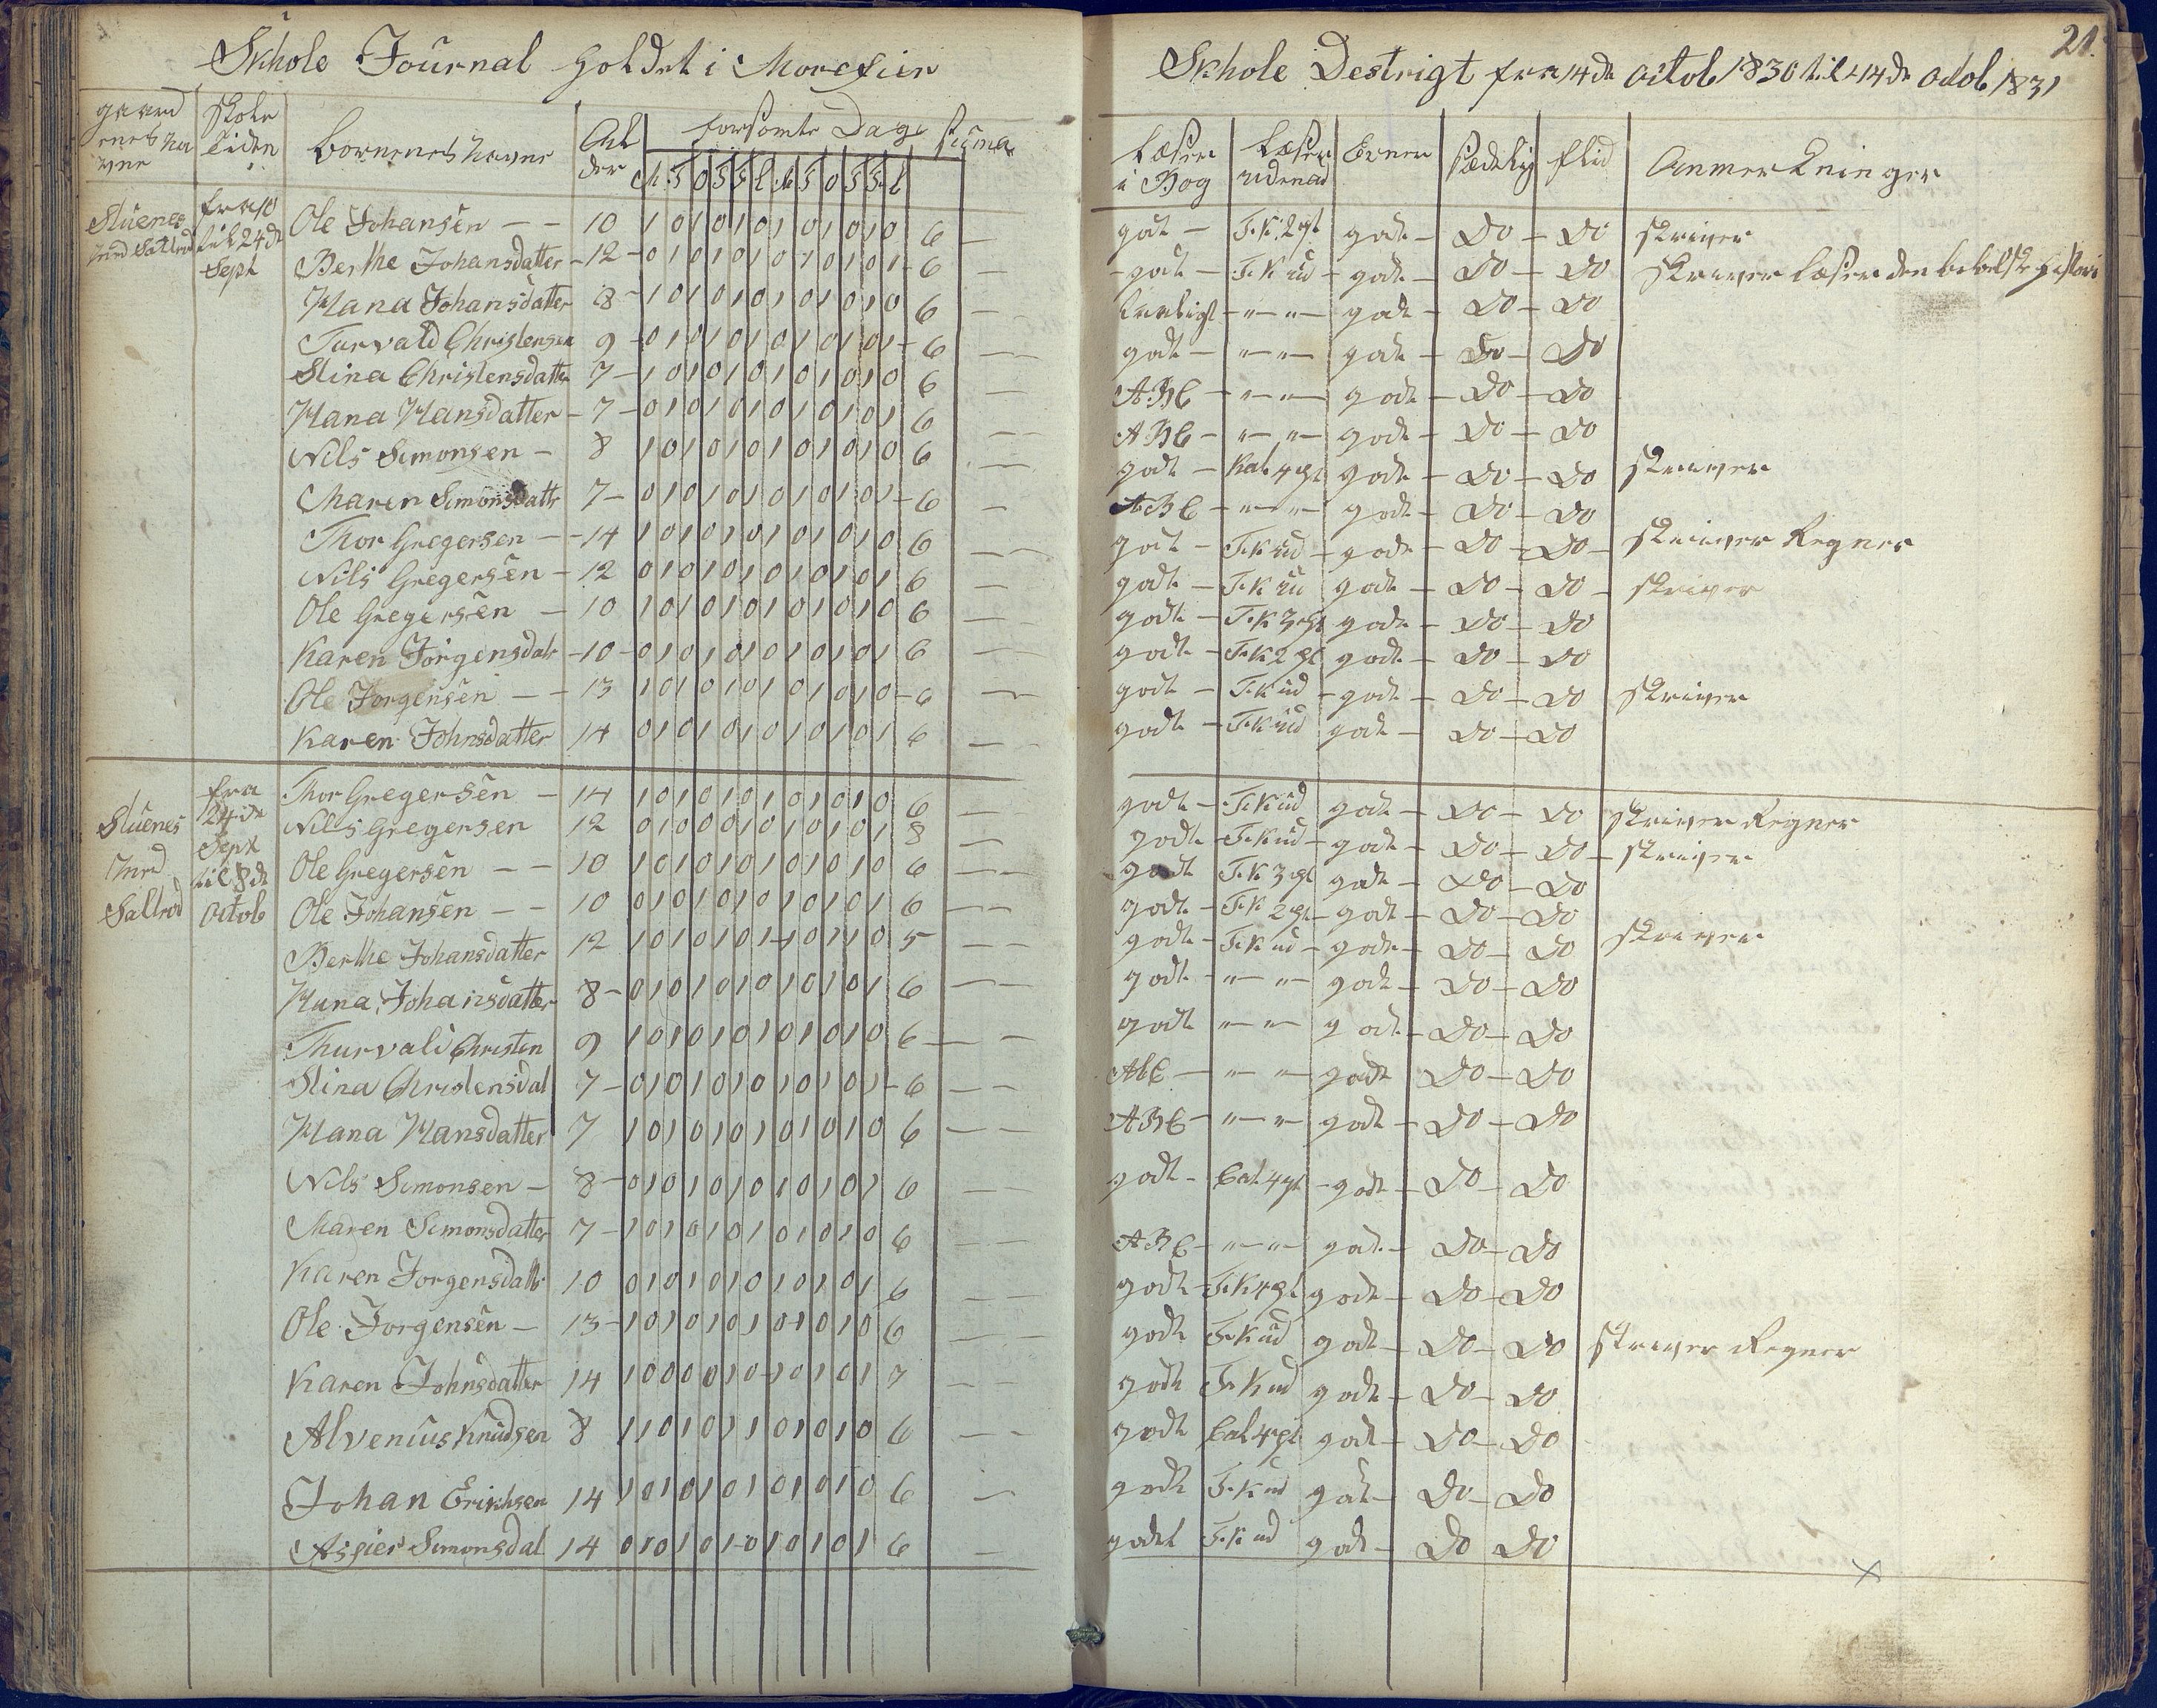 Skhole Journal holdet i Morefier
Skhole Destrigt fra 14de octob 1830 til 14de octob 1831
21.
gaard enes na vne | skole tiden | børnenes navne | Al der | forsømte Dage | suma
M T O T F L M T O T F L
læser i Bog | læser udenad | Evner | sædelig | flid | Anmerkninger
Stuenes Inrd Saltrød | fra 10 til 24de Sept
Ole Johansen — 10 1 0 1 0 1 0 1 0 1 0 1 0 6 — godt — F.K. 2 pt godt — Do — Do skriver
Berthe Johansdatter — 12 — 0 1 0 1 0 1 0 1 0 1 0 1 — 6 — godt — F.K ud — godt — Do — Do skriver læser den bibelske historie
Hana Johansdatter 8 — 1 0 1 0 1 0 1 0 1 0 1 0 6 — " — " — godt — Do — Do
Turvald Christensen 9 — 0 1 0 1 0 1 0 1 0 1 0 1 — 6 — godt — " — " — godt — Do — Do
Stina Christensdatter 7 — 1 0 1 0 1 0 1 0 1 0 1 0 6 — ABC — " — " — godt — Do — Do
Hana Hansdatter — 7 — 0 1 0 1 0 1 0 1 0 1 0 1 6 — ABC — " — " — godt — Do — Do
Nils Simonsen — 8 1 0 1 0 1 0 1 0 1 0 1 0 6 — godt — Kat 4 pt godt — Do — Do skriver
Maren Simonsdatr 7 — 0 1 0 1 0 1 0 1 0 1 0 1 — 6 — ABC — " — " — godt — Do — Do
Thor Gregersen — 14 1 0 1 0 1 0 1 0 1 0 1 0 6 — godt — F.K ud — godt — Do — Do — skriver Regner
Nils Gregersen — 12 0 1 0 1 0 1 0 1 0 1 0 1 6 — godt — F.K ud godt — Do — Do — skriver
Ole Gregersen — 10 1 0 1 0 1 0 1 0 1 0 1 0 6 — godt — F.K 3 pt godt — Do — Do
Karen Jörgensdatr — 10 — 0 1 0 1 0 1 0 1 0 1 0 1 6 — godt — F.K 2 pt godt — Do — Do
Ole Jorgensen — 13 1 0 1 0 1 0 1 0 1 0 1 0 — 6 — godt — F.K ud — godt — Do — Do skriver
Karen Johnsdatter 14 0 1 0 1 0 1 0 1 0 1 0 1 6 — godt — F.K ud godt — Do — Do
Stuenes Inrd Saltrød | fra 24de Sept til 8de octob
Thor Gregersen — 14 1 0 1 0 1 0 1 0 1 0 1 0 6 — godt — F.K ud godt — Do — Do skriver Regner
Nils Gregersen 12 0 1 0 0 0 1 0 1 0 1 0 1 8 — godt — F.K ud — godt — Do — Do — skriver
Ole Gregersen — 10 1 0 1 0 1 0 1 0 1 0 1 0 6 — godt F.K 3 pt godt — Do — Do
Ole Johansen — 10 0 1 0 1 0 1 0 1 0 1 0 1 6 — godt — F.K 2 pt — godt — Do — Do
Berthe Johansdatter 12 1 0 1 0 1 0 1 1 0 1 1 0 5 — godt — F.K ud — godt — Do — Do skriver
Hana Johansdatter 8 — 0 1 0 1 0 1 0 1 0 1 0 1 6 — godt — " — " — godt — Do — Do
Thurvald Christen 9 1 0 1 0 1 0 1 0 1 0 1 0 6 — godt " — " — godt — Do — Do
Stina Christensdat 7 — 0 1 0 1 0 1 0 1 0 1 0 1 — 6 — AbC — " — " — godt Do — Do
Hana Hansdatter 7 1 0 1 0 1 0 1 0 1 0 1 0 6 — ABC — " — " — godt — Do — Do
Nils Simonsen — 8 — 0 1 0 1 0 1 0 1 0 1 0 1 6 — godt — Cat 4 pt — godt — Do — Do
Maren Simonsdatter 7 — 1 0 1 0 1 0 1 0 1 0 1 0 6 — ABC — " — " — godt — Do — Do
Karen Jorgensdatr 10 0 1 0 1 0 1 0 1 0 1 0 1 6 — godt — F.K 4 pt godt — Do — Do
Ole Jorgensen — 13 — 1 0 1 0 1 0 1 0 1 0 1 0 6 — godt F.K ud godt — Do — Do skriver Regner
Karen Johnsdatter 14 1 0 0 0 0 1 0 1 0 1 0 1 7 — godt F.K ud godt — Do — Do
Alvenius Knudsen 8 1 1 0 1 0 1 1 0 1 0 1 0 6 — godt Cat 4 pt godt — Do — Do
Johan Erikhsen 14 1 0 1 0 1 0 1 0 1 0 1 0 6 — godt F.K ud godt — Do — Do
Simonsdat 14 0 1 0 1 0 1 0 1 0 1 0 1 6 — godt F.K ud godt — Do Do
x